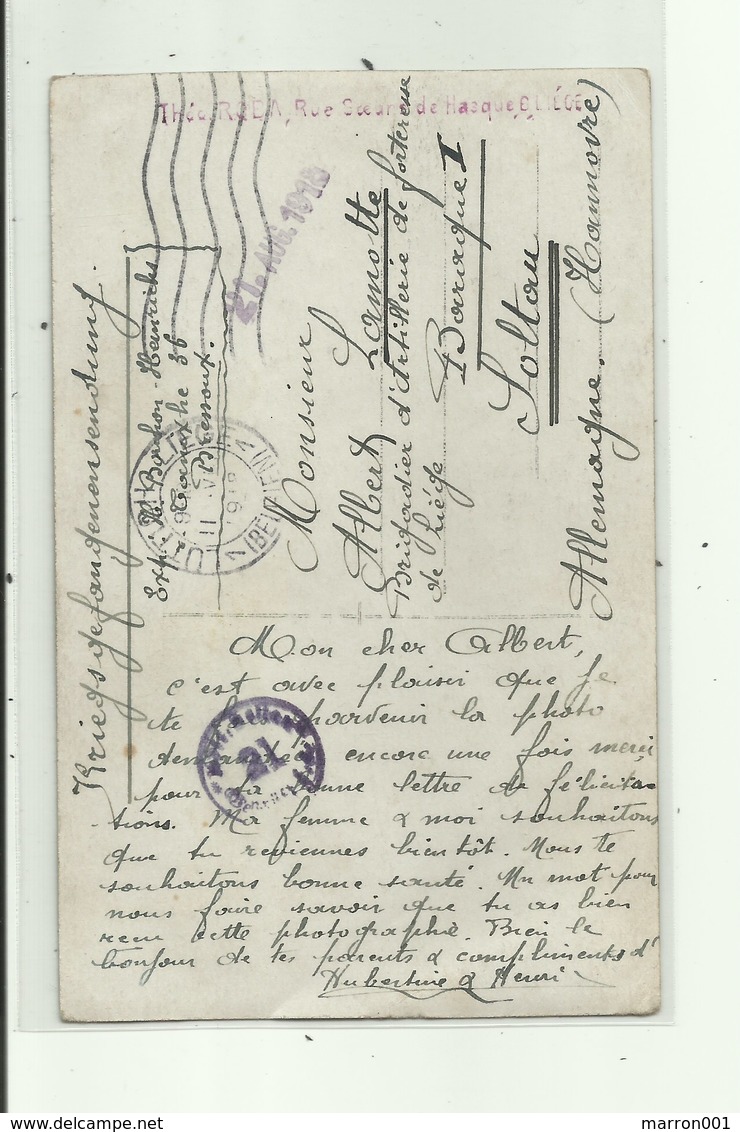 Théo. RODA, Rue Sœurs de Hasque 8 LIÉGE
27. AUG. 1918
Kriegsgefangenensendung.
Exp. H. Bohon-Heinrichs
36
Bressoux.
Monsieur
Albert Lamotte
Brigadier d'Artillerie de forteresse
de Liége
Baraque I
Soltau
Allemagne. (Hannovre)
Mon cher Albert,
c'est avec plaisir que je
te parvenir la photo
demandée encore une fois merci
pour ta bonne lettre de félicita-
tions. Ma femme & moi souhaitons
que tu reviennes bientôt. Nous te
souhaitons bonne santé. Un mot pour
nous faire savoir que tu as bien
recu cette photographie. Bien le
bonjour de tes parents & compliments d'
Hubertine & Henri
21
delcampe.net
marron001